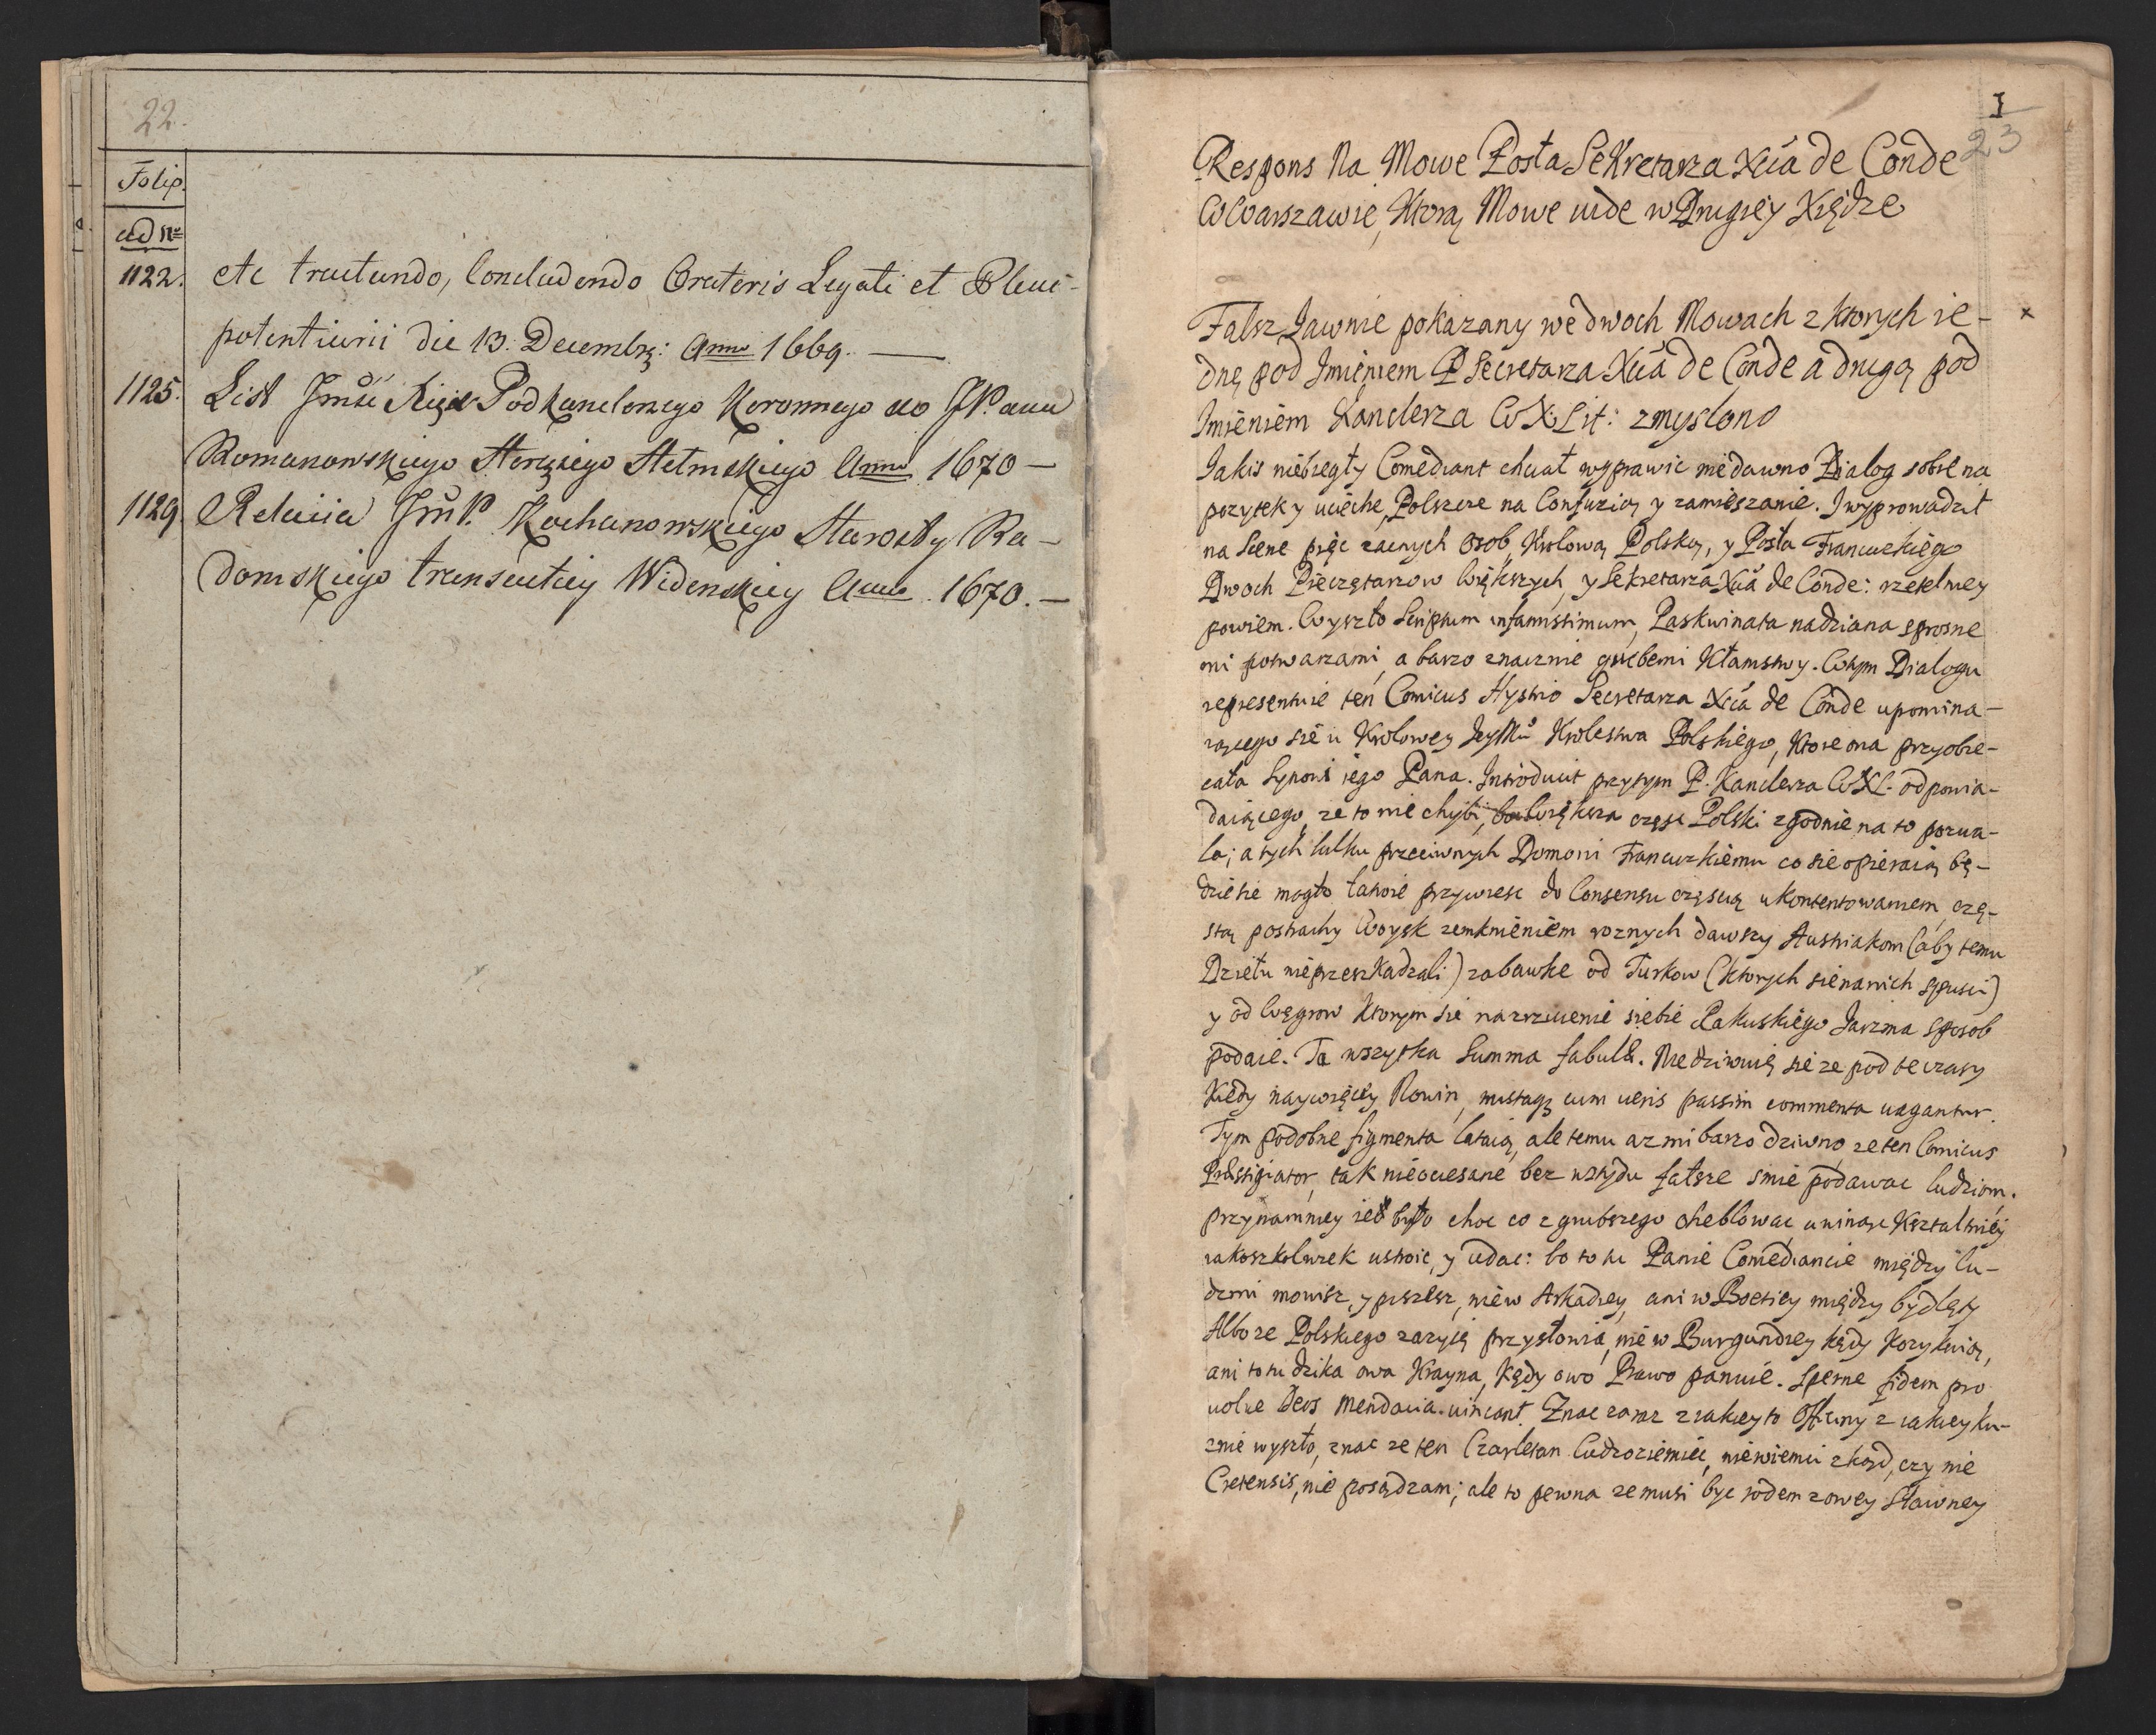 22.
Folio.
ad No
1122. etc tractando, Concludendo Oratoris Legati et Pleni-
potentiarii die 13. Decembr: Anno 1669. —
1125. List Jmści Księdza Podkanclerzego Koronnego do JP. 
Romanowskiego Anno 1670 —
1129 Relacija JmP. Kochanowskiego Starosty Ra-
domskiego transactiey Widenskiey Anno 1670. —
I
23
Respons Na Mowe Posła Sekretarza Xcia de Conde
W Warszawie, Ktorą Mowe vide w Drugiey Xiędze
Falsz Jawnie pokazany we dwoch Mowach z ktorych ie- x
dnę pod Jmieniem P Secretarza Xcia de Conde a drugą pod
Jmieniem Kanclerza W X Lit: zmyslono
Jakis niebiegły Comediant chciał wyprawic niedawno Dialog sobie na
pozytek y ucieche, Polszcze na Confuzią y zamieszanie. J wyprowadził
na Scene pięc zacnych osob, Krolową Polską, y Posła Francuzkiego
Dwoch Pieczętarzow Większych, y Sekretarza Xcia de Conde: rzetelniey
powiem. Wyszło Scriptum infamissimum, Paskwinata nadziana sprosne
mi potwarzami, a barzo znacznie grubemi Kłamstwy. W tym Dialogu
representuie ten Comicus Hystrio Secretarza Xcia de Conde upomina-
iącego sie u Krolowey Krolestwa Polskiego, Ktore ona przyobie-
cała Synowi iego Pana. Introducit przytym P. Kanclerza WXL. odpowia-
daiącego, ze to nie chybi, bo większa częsc Polski zgodnie na to pozwa-
la; a tych kilku przeciwnych Domowi Francuzkiemu co sie opieraią bę-
dzie sie mogło łatwie przywiesc do Consensu częscią ukontentowaniem, czę-
scią postrachy Woysk zemknieniem roznych dawszy Austriakom (aby temu
Dziełu nie przeszkadzali) zabawke od Turkow (ktorych sie na nich spusci)
y od Węgrow Ktorym sie na zrzucenie siebie Rakuskiego Jarzma sposob
podaie. Ta wszytka Summa fabulæ. Nie dziwuię sie ze pod te czasy
Kiedy naywięcey Nowin, mistaq cum veris passim commenta vagantur.
Tym podobne figmenta lataią, ale temu az mi barzo dziwno, ze ten Comicus
Præstigiator, tak nieociesane bez wstydu fałsze smie podawac ludziom.
przynamniey było choc co z grubszego oheblowac, Kształtniey
iakoszkolwiek ustroic, y udac: bo to tu Panie Comediancie między lu-
dzmi mowisz, y piszesz, nie w Arkadiey, ani w Boetiey między bydlęty
Albo ze Polskiego zazyię przysłowia, nie w Burgundiey kędy
ani to tu dzika owa Krayna, Kędy owo Prawo panuie. Sperne fidem pro
volue Deos Mendacia vincant. Znac zaraz z iakiey to Officiny z iakiey ku-
znie wyszło, znac ze ten Czarletan Cudzoziemiec, nie wiem zkąd, czy nie
Cretensis, nie posądzam; ale to pewna ze musi byc rodem z owey sławney